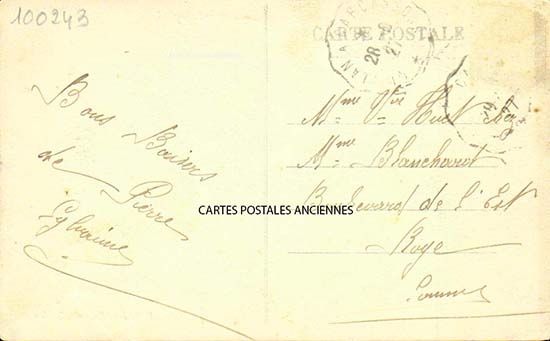 100243
CARTE POSTALE
28
27
Bons Baisers
de Pierre
Sylvaine
Mme Vve Huet
Mme Blanchard
Boulevard de l'Est
Roye
Somme
CARTES POSTALES ANCIENNES